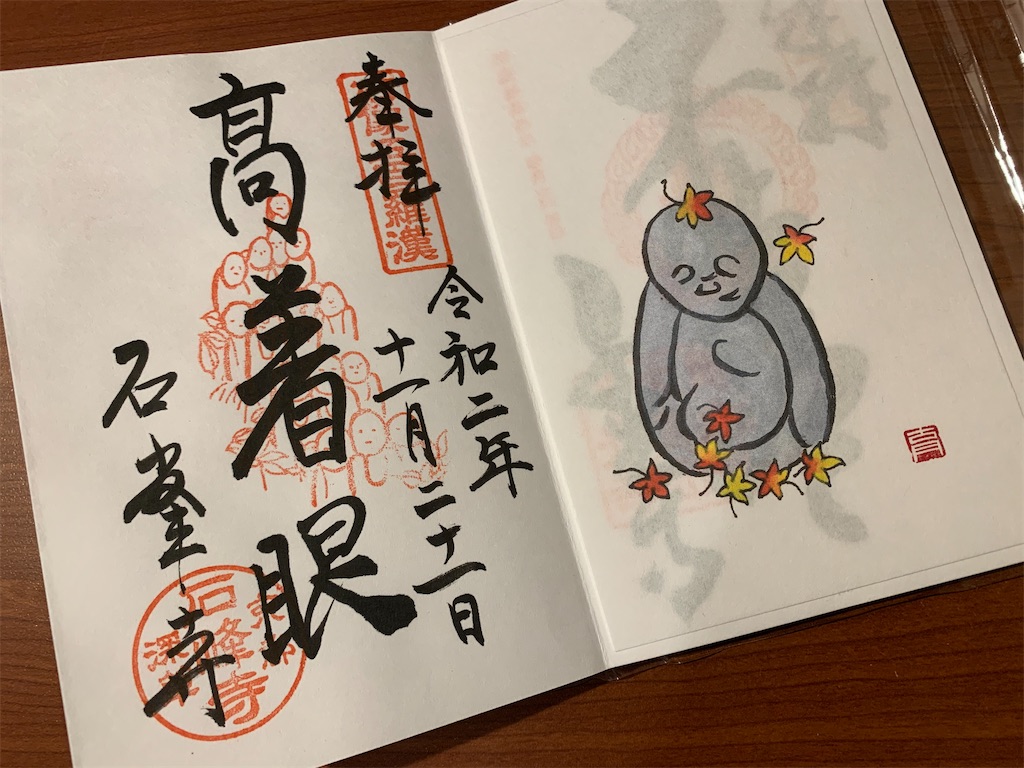 奉拝
羅漢
令和二年
十一月二十一日
高着眼
石峯寺
京都
石峰寺
深草